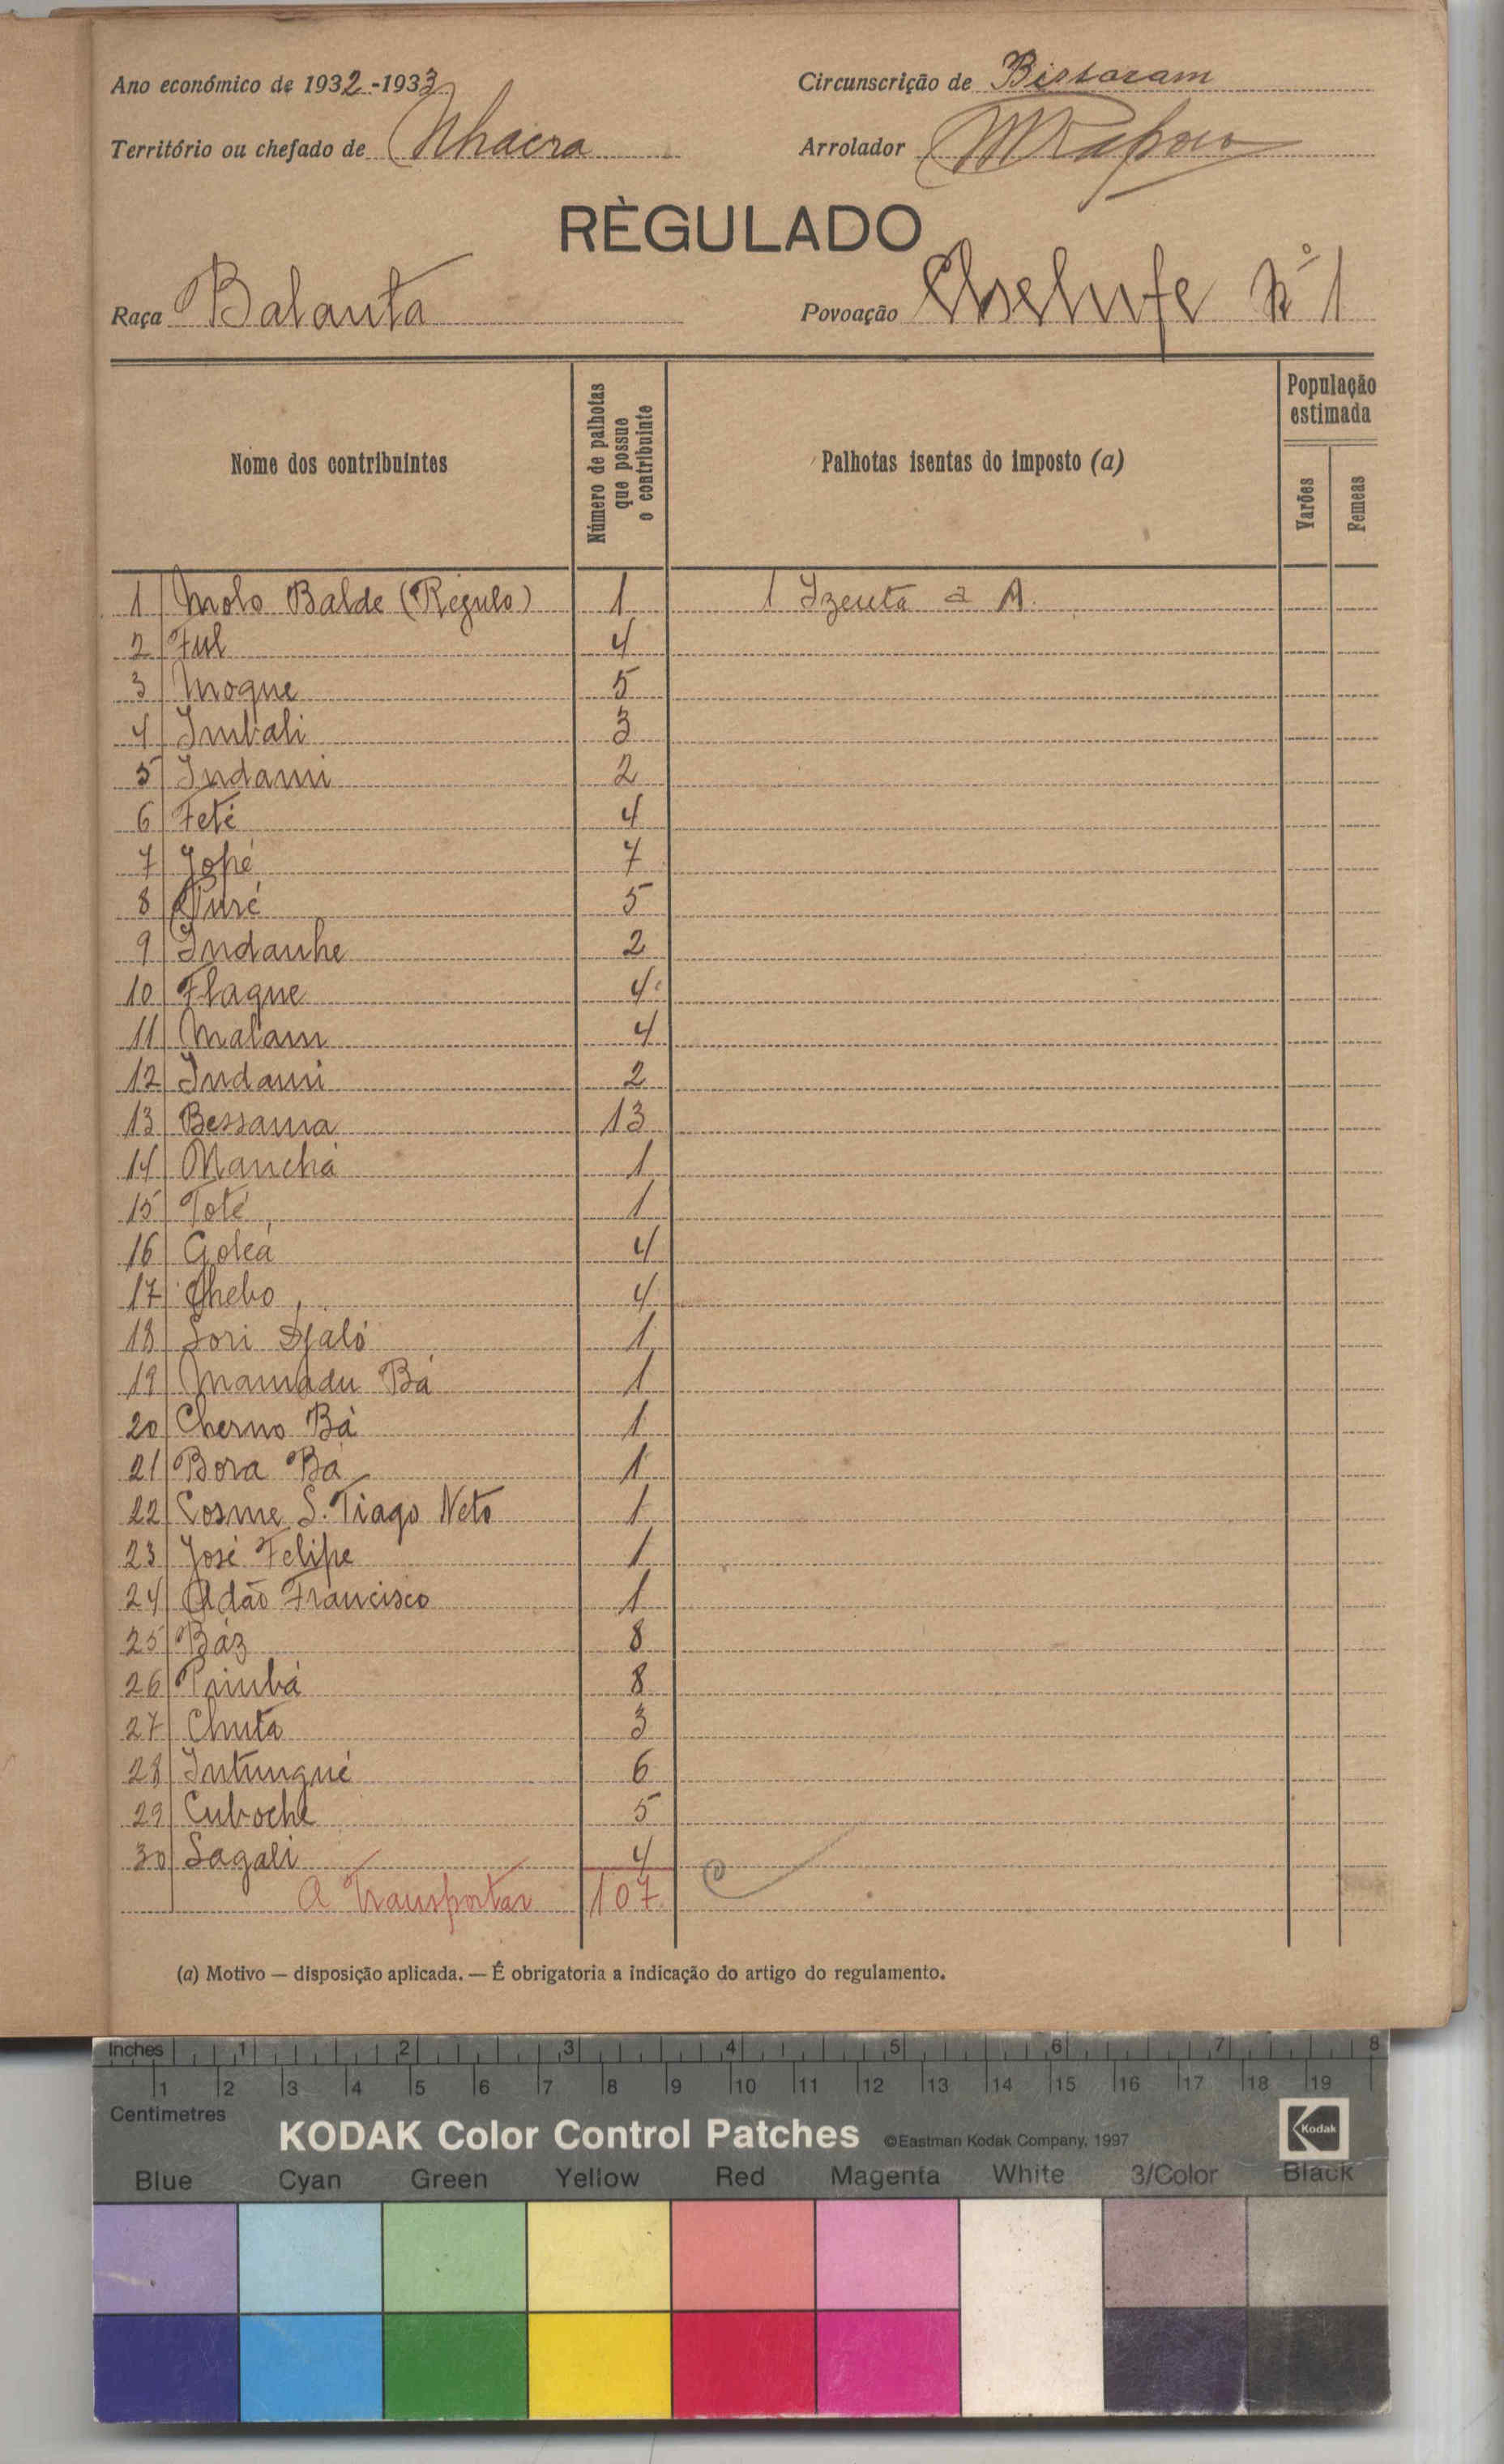 Ano económico de 1932-1933
Circunscrição de Bissoram
Território ou chefado de Nhacra
Arrolador
RÈGULADO
Raça Balanta
Povoação nº 1
Nome dos contribuintes
Número de palhotas que possue o contribuinte
Palhotas isentas do imposto (a)
População estimada
Varões
Femeas
1 Molo Balde (Regulo) 1 1 Izenta a A.
2 Ful 4
3 Moque 5
4 Imbali 3
5 Indami 2
6 Feté 4
7 Jopé 7
8 5
9 Indanhe 2
10 Flaque 4
11 Malam 4
12 Indami 2
13 Bessama 13
14 Manchá 1
15 Toté 1
16 Goleá 4
17 4
18 Sori Djaló 1
19 Mamadu Bá 1
20 Cherno Bá 1
21 Bora Bá 1
22 Cosme S. Tiago Neto 1
23 José Felipe 1
24 Adão Francisco 1
25 Báz 8
26 8
27 Chuta 3
28 Intungué 6
29 Cuboche 5
30 Sagali 4
A Transportar 107
(a) Motivo — disposição aplicada. — É obrigatoria a indicação do artigo do regulamento.
Inches 1 2 3 4 5 6 7 8
1 2 3 4 5 6 7 8 9 10 11 12 13 14 15 16 17 18 19
Centimetres
KODAK Color Control Patches ©Eastman Kodak Company, 1997 Kodak
Blue Cyan Green Yellow Red Magenta White 3/Color Black